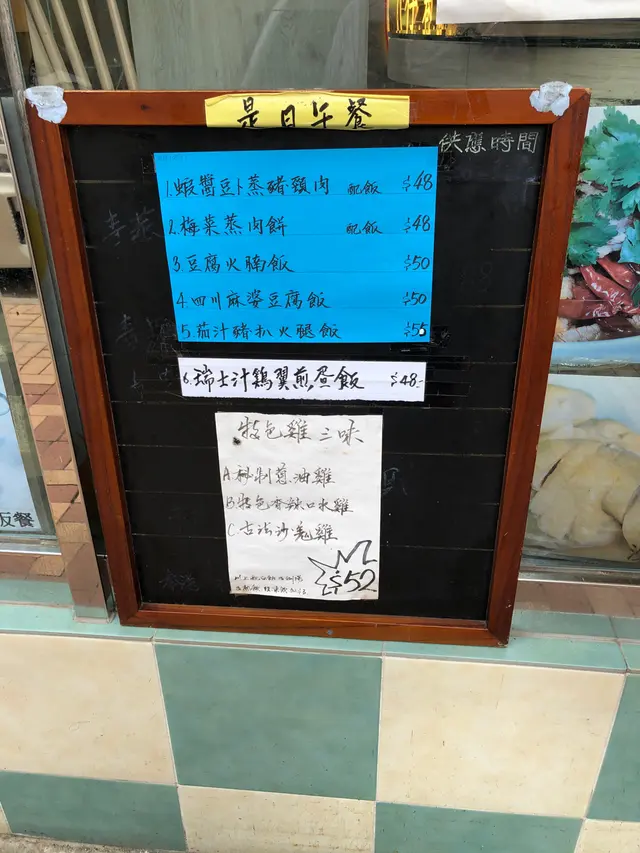 是日午餐
供應時間
1.蝦醬豆卜蒸豬頸肉 配飯 $48
2.梅菜蒸肉餅 配飯 $48
3.豆腐火腩飯 $50
4.四川麻婆豆腐飯 $50
5.茄汁豬扒火腿飯 $55
6.瑞士汁鷄翼煎蛋飯 $48-
特色雞三味
A秘制蔥油雞
B特色香辣口水雞
C.古法沙羌雞
$52
飯餐